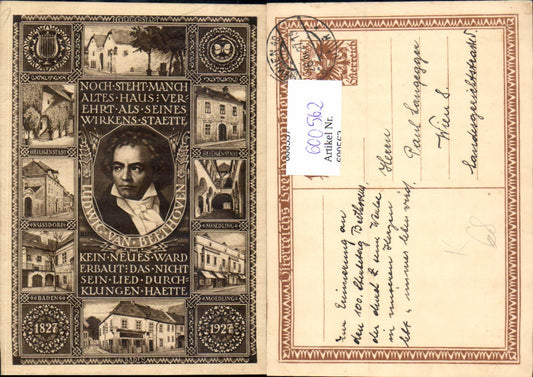 HEILIGENSTADT
NOCH·STEHT·MANCH
ALTES·HAUS:VER-
EHRT·ALS·SEINES
WIRKENS·STAETTE
HEILIGENSTADT
HEILIGENSTADT
LUDWIG·VAN·BEETHOVEN
NUSSDORF
MÖDLING
KEIN·NEUES·WARD
ERBAUT:DAS·NICHT
SEIN·LIED·DURCH-
KLUNGEN·HAETTE
BADEN
MÖDLING
1827
1927
Österreich
600562
Artikel Nr.
Herrn
Paul Langegger
Wien 8.
Landesgerichtsstraße
Zur Erinnerung an
den 100. Todestag Beethovens,
der durch s. Werke
in unseren Herzen
lebt u. immer leben wird
K
68